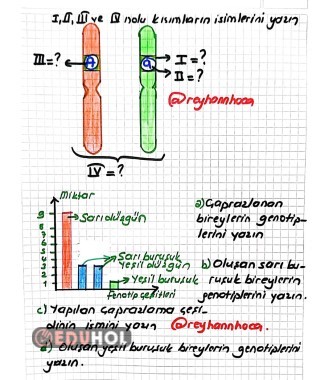 I, II, III ve IV nolu kısımların isimlerini yazın
III=?
A
a
I=?
II=?
@reyhannhoca
IV=?
Miktar
9
8
7
6
5
4
3
2
1
Sarı düzgün
Sarı buruşuk
Yeşil düzgün
Yeşil buruşuk
Fenotip çeşitleri
a) Çaprazlanan
bireylerin genotip-
lerini yazın
b) Oluşan sarı bu-
ruşuk bireylerin
genotiplerini yazın.
c) Yapılan çaprazlama çeşi-
dinin ismini yazın @reyhannhoca.
EDUHOL
d) Oluşan yeşil buruşuk bireylerin genotiplerini
yazın.